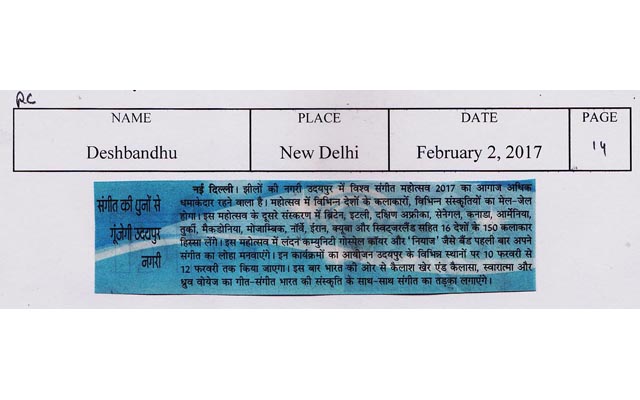 RC
NAME PLACE DATE PAGE
Deshbandhu New Delhi February 2, 2017 14
संगीत की धुनों से
गूंजेगी उदयपुर
नगरी
नई दिल्ली। झीलों की नगरी उदयपुर में विश्व संगीत महोत्सव 2017 का आगाज अधिक
धमाकेदार रहने वाला है। महोत्सव में विभिन्न देशों के कलाकारों, विभिन्न संस्कृतियों का मेल-जेल
होगा। इस महोत्सव के दूसरे संस्करण में ब्रिटेन, इटली, दक्षिण अफ्रीका, सेनेगल, कनाडा, आर्मेनिया,
तुर्की, मैकडोनिया, मोजाम्बिक, नॉर्वे, ईरान, क्यूबा और स्विटजरलैंड सहित 16 देशों के 150 कलाकार
हिस्सा लेंगे। इस महोत्सव में लंदन कम्युनिटी गोस्पेल कॉयर और 'नियाज' जैसे बैंड पहली बार अपने
संगीत का लोहा मनवाएंगे। इन कार्यक्रमों का आयोजन उदयपुर के विभिन्न स्थानों पर 10 फरवरी से
12 फरवरी तक किया जाएगा। इस बार भारत की ओर से कैलाश खेर एंड कैलासा, स्वारात्मा और
ध्रुव वोयेज का गीत-संगीत भारत की संस्कृति के साथ-साथ संगीत का तड़का लगाएंगे।